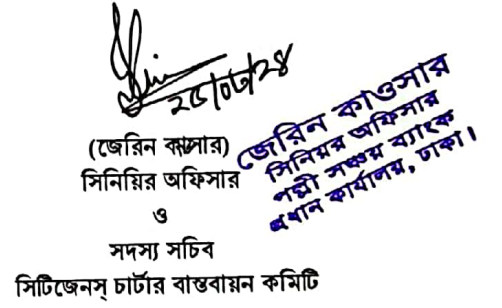 ২৫/০৮/২৪
(জেরিন কাওসার)
সিনিয়র অফিসার
ও
সদস্য সচিব
সিটিজেনস্ চার্টার বাস্তবায়ন কমিটি
জেরিন কাওসার
সিনিয়র অফিসার
পল্লী সঞ্চয় ব্যাংক
প্রধান কার্যালয়, ঢাকা।